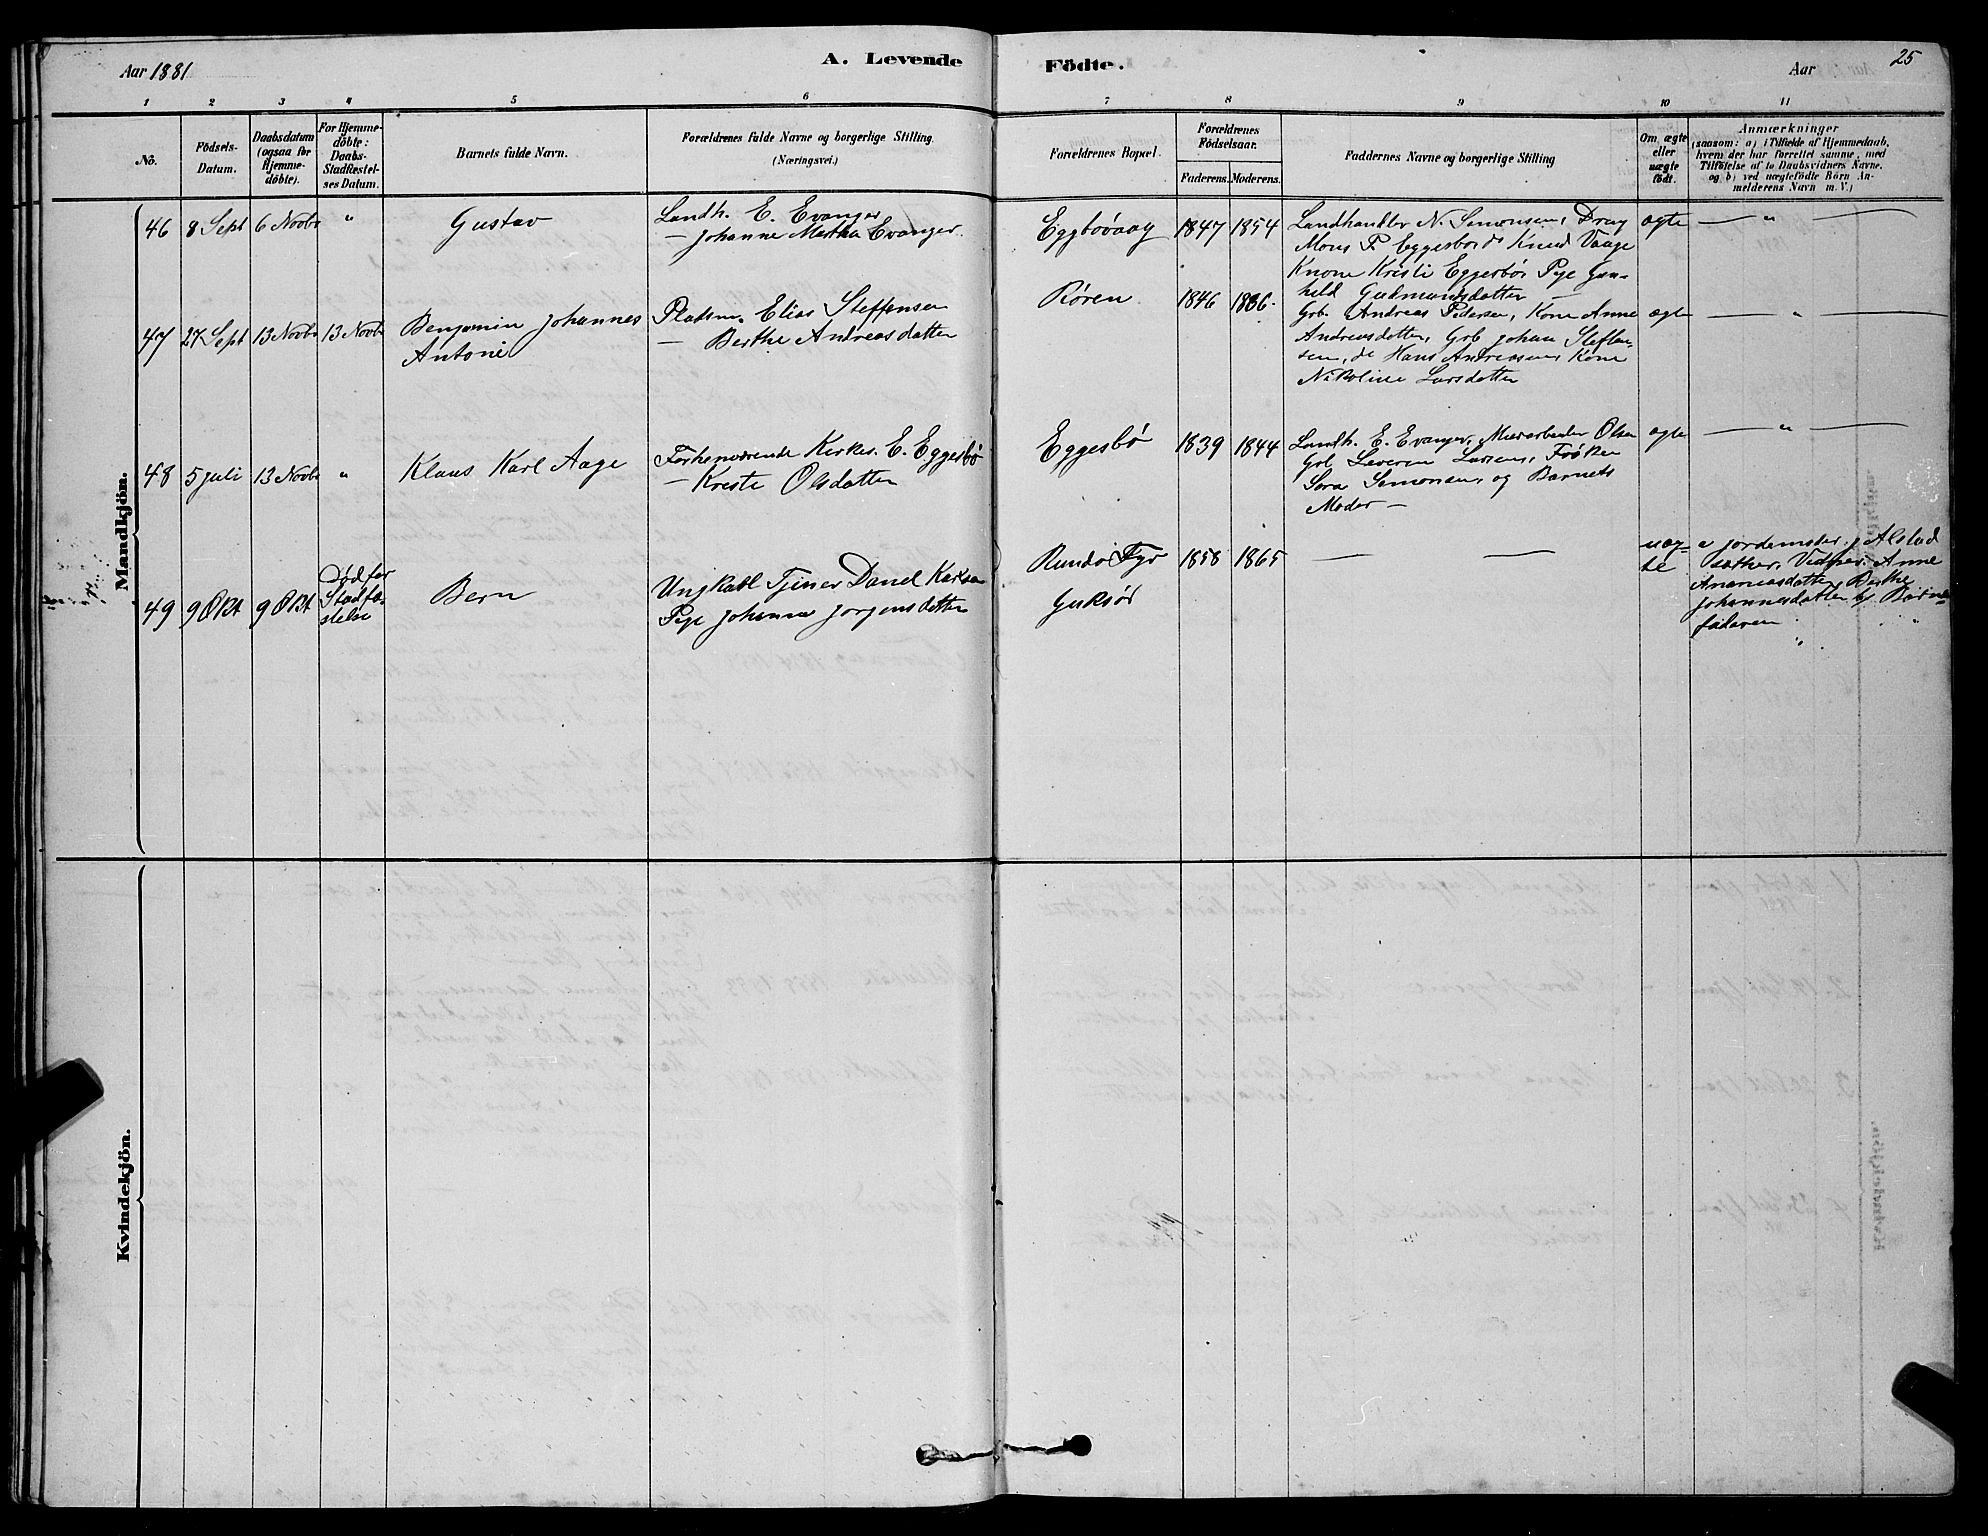 Aar 1881
A. Levende Födte.
Aar
25
1 2 3 4 5 6 7 8 9 10 11
No.
Födsels-
Datum.
Daabsdatum
(ogsaa for
Hjemme-
döbte).
For Hjemme-
döbte:
Daabs-
Stadfæstel-
ses Datum.
Barnets fulde Navn.
Forældrenes fulde Navne og borgerlige Stilling
(Næringsvei.)
Forældrenes Bopæl.
Forældrenes
Födselsaar.
Faderens. Moderens.
Faddernes Navne og borgerlige Stilling
Om ægte
eller
uægte
födt.
Anmærkninger
(saasom: a) i Tilfælde af Hjemmedaab,
hvem der har forrettet samme, med
Tilföielse af to Daabsvidners Navne.
og b) ved uægtefödte Börn An-
melderens Navn m. V.)
Mandkjön.
46 8 Sept 6 Novbr " Gustav
Landh. E. Evanger
— Johanne Martha Evanger
Eggbøvaag 1847 1854
Landhandler N. Simonsen, Drag
Mons P. Eggesbø do Knud Vaage
Knone Kristi Eggesbø, Pige Gun-
hild Gudmundsdatter —
ægte — " —
47 27 Sept 13 Novbr 13 Novbr
Benjamin Johannes
Antoni
Pladsm. Elias Steffensen
— Berthe Andreasdatter
Røren 1846 1836
Grb. Andreas Pedersen, Kone Anne
Andreasdatter, Grb Johan Steffen-
sen, do Hans Andreasen, Kone
Nikoline Larsdatter
ægte — " —
48 5 juli 13 Novbr " Klaus Karl Aage
Forhenværende Kirkes. E. Eggesbø
— Kristi Olsdatter
Eggesbø 1839 1844
Landh. E. Evanger, Murarbeider Olsen
Grb Severin Larsen, Frøken
Sara Simonsen, og Barnets
Moder —
ægte — " —
49 9 Okt 9 Okt
Død før
Stadfæ-
stelse
Bern
Ungkarl Tjener Danel Karlsen
Pige Johanna Jørgensdatter
Rundø Fyr
Guksør
1858 1865
— —
uæg-
te
a Jordemoder J Alstad
Sæther, Vidner: Anne
Ananiasdatter, Berthe
Johannesdatter b) Barne-
faderen
Kvindekjön.